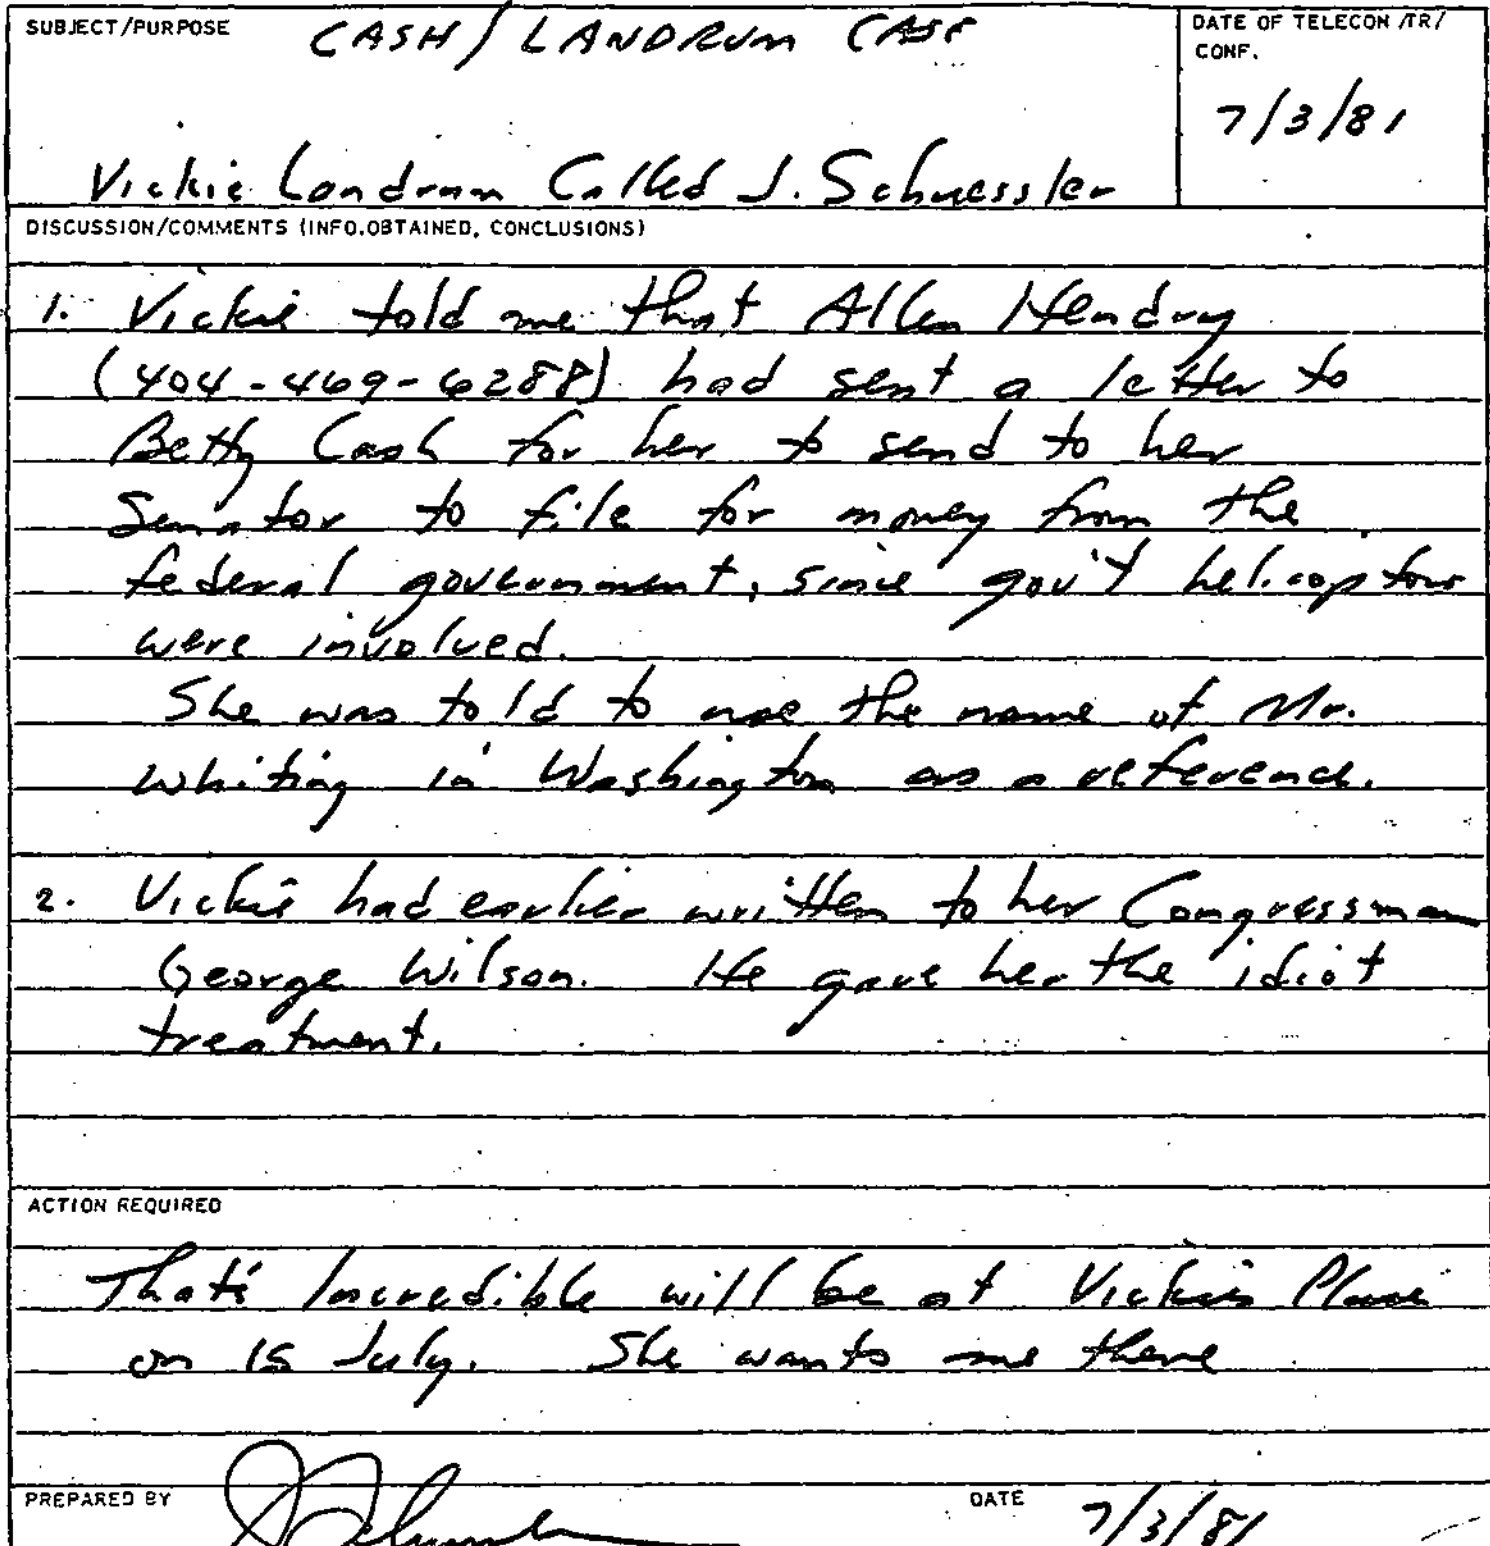 SUBJECT/PURPOSE CASH/LANDRUM CASE
DATE OF TELECON /TR/
CONF.
7/3/81
Vickie Landrum Called J. Schuessler
DISCUSSION/COMMENTS (INFO.OBTAINED, CONCLUSIONS)
1. Vickie told me that Allen Hendry
(404-469-6288) had sent a letter to
Betty Cash for her to send to her
Senator to file for money from the
federal government, since gov't helicopters
were involved.
She was told to use the name of Mr.
Whiting in Washington as a reference.
2. Vickie had earlier written to her Congressman
George Wilson. He gave her the idiot
treatment.
ACTION REQUIRED
That's Incredible will be at Vickie's Place
on 15 July. She wants me there
PREPARED BY J Schuessler DATE 7/3/81